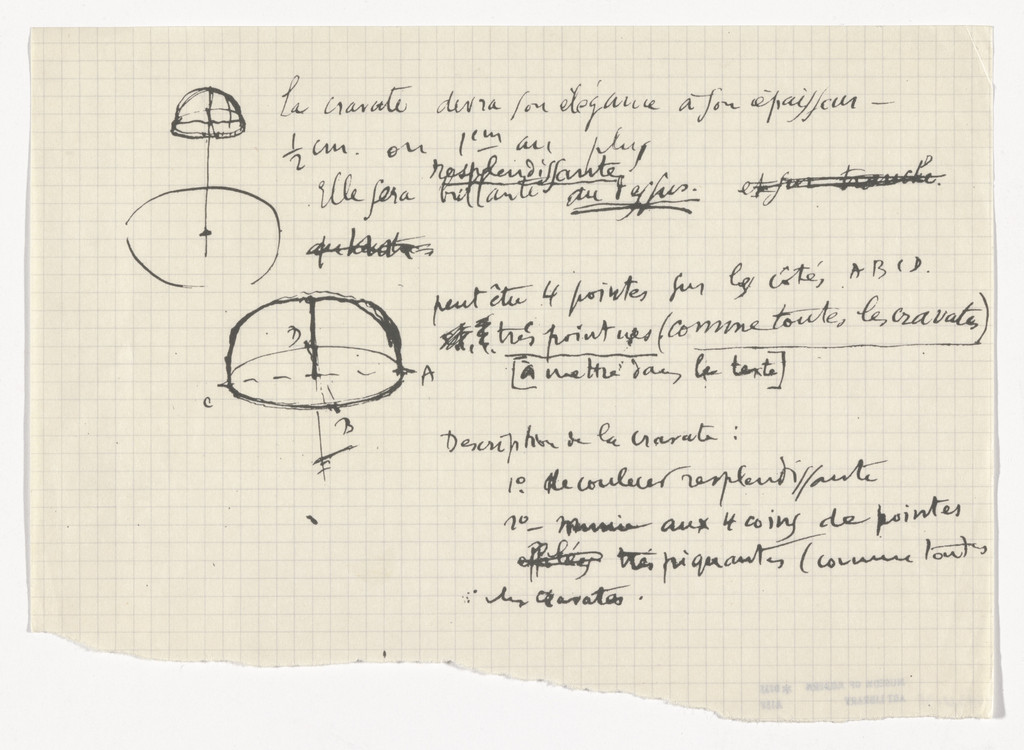 La cravate devra son élégance à son épaisseur –
½ cm. ou 1cm au plus
resplendissante
Elle sera brillante au dessus. et sur tranche.
peut être 4 pointes sur les côtés A B C D.
très pointues (comme toutes les cravates)
[à mettre dans le texte]
D
A
C
B
F
Description de la cravate :
1º de couleur resplendissante
2º – munie aux 4 coins de pointes
effilées très piquantes (comme toutes
les cravates.